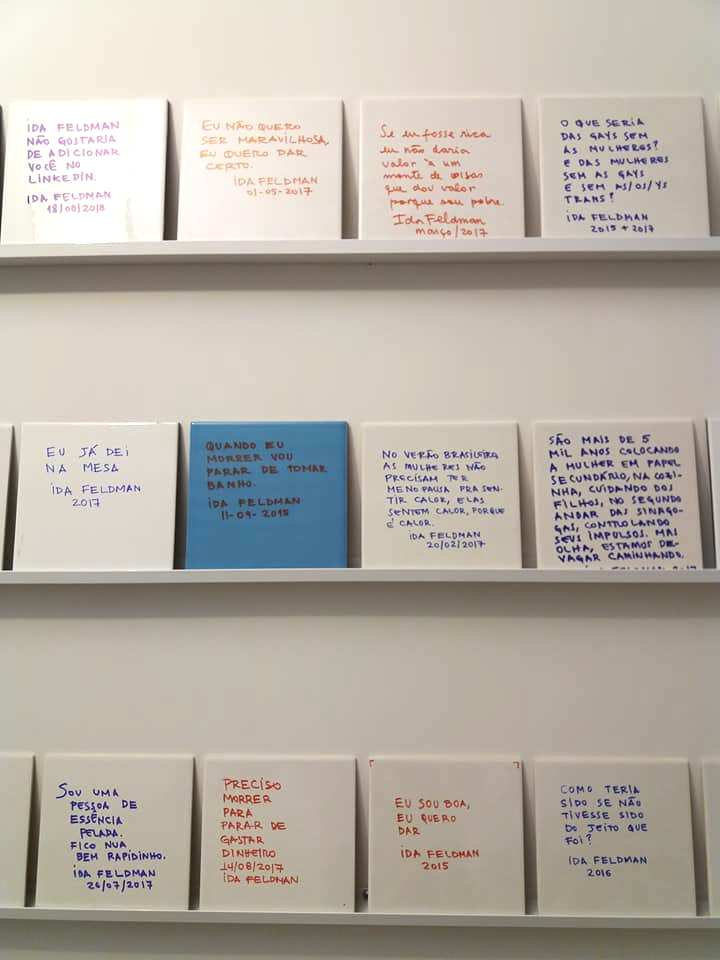 IDA FELDMAN
NÃO GOSTARIA
DE ADICIONAR
VOCÊ NO
LINKEDIN.
IDA FELDMAN
18/08/2018
EU NÃO QUERO
SER MARAVILHOSA,
EU QUERO DAR
CERTO.
IDA FELDMAN
01-05-2017
Se eu fosse rica
eu não daria
valor a um
monte de coisas
que dou valor
porque sou pobre.
Ida Feldman
março/2017
O QUE SERIA
DAS GAYS SEM
AS MULHERES?
E DAS MULHERES
SEM AS GAYS
E SEM AS/OS/YS
TRANS?
IDA FELDMAN
2015 + 2017
EU JÁ DEI
NA MESA
IDA FELDMAN
2017
QUANDO EU
MORRER VOU
PARAR DE TOMAR
BANHO.
IDA FELDMAN
11-09-2015
NO VERÃO BRASILEIRO
AS MULHERES NÃO
PRECISAM TER
MENOPAUSA PRA SEN-
TIR CALOR, ELAS
SENTEM CALOR, PORQUE
É CALOR.
IDA FELDMAN
20/02/2017
SÃO MAIS DE 5
MIL ANOS COLOCANDO
A MULHER EM PAPEL
SECUNDÁRIO, NA COZI-
NHA, CUIDANDO DOS
FILHOS, NO SEGUNDO
ANDAR DAS SINAGO-
GAS, CONTROLANDO
SEUS IMPULSOS. MAS
OLHA, ESTAMOS DE-
VAGAR CAMINHANDO.
SOU UMA
PESSOA DE
ESSÊNCIA
PELADA.
FICO NUA
BEM RAPIDINHO.
IDA FELDMAN
26/07/2017
PRECISO
MORRER
PARA
PARAR DE
GASTAR
DINHEIRO
14/08/2017
IDA FELDMAN
EU SOU BOA,
EU QUERO
DAR
IDA FELDMAN
2015
COMO TERIA
SIDO SE NÃO
TIVESSE SIDO
DO JEITO QUE
FOI?
IDA FELDMAN
2016